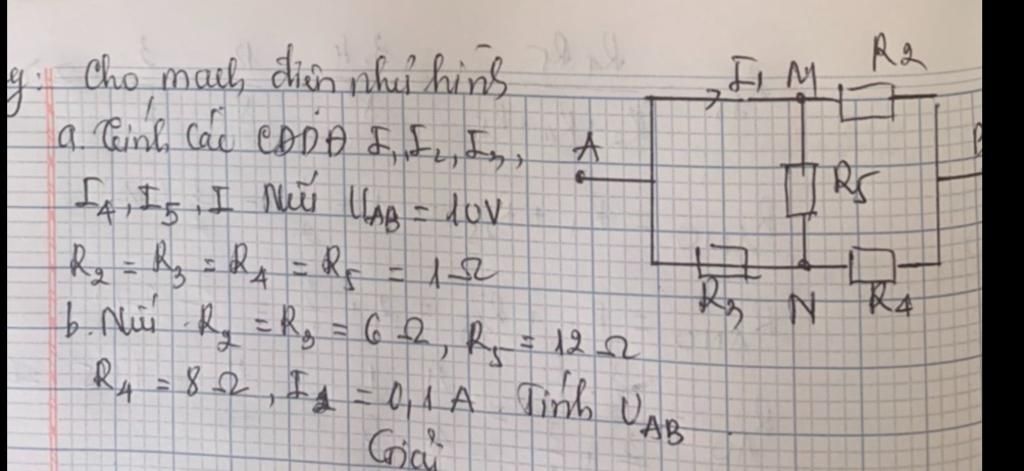 Cho mạch điện như hình
a. Tính các CĐDĐ I₁, I₂, I₃,
I₄, I₅, I Nếu U_AB = 10V
R₂ = R₃ = R₄ = R₅ = 1Ω
b. Nếu R₂ = R₃ = 6Ω, R₅ = 12Ω
R₄ = 8Ω, I₁ = 0,1A Tính U_AB
Giải
I₁ M R₂
A
R₅
R₃ N R₄